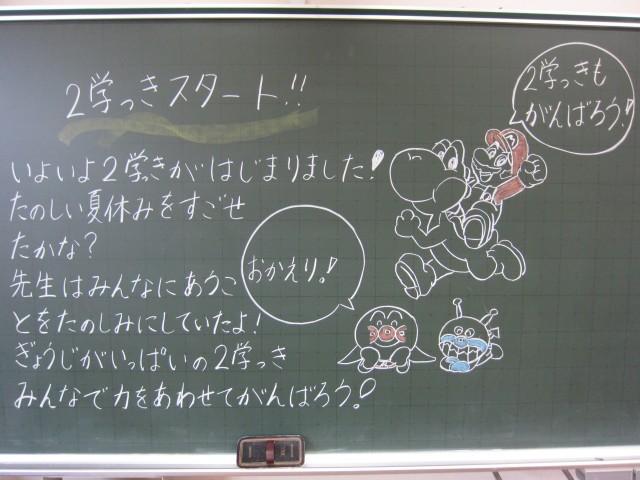 2学っきスタート!!
2学っきも
がんばろう!
いよいよ2学っきがはじまりました!
たのしい夏休みをすごせ
たかな?
おかえり!
先生はみんなにあうこ
とをたのしみにしていたよ!
ぎょうじがいっぱいの2学っき
みんなで力をあわせてがんばろう!